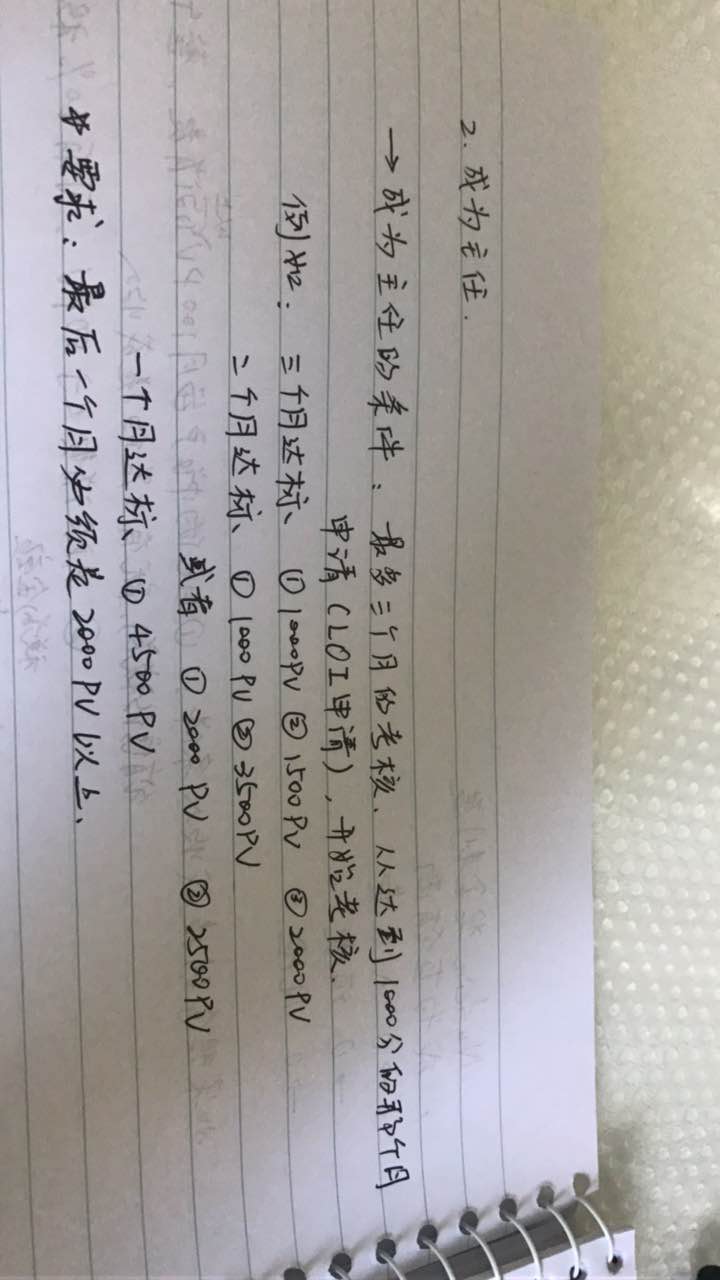 2. 成为主任.
→ 成为主任的条件: 最多三个月的考核、从达到1000分的那个月
申请(LOI申请), 开始考核.
例如: 三个月达标、 ① 1000PV ② 1500PV ③ 2000PV
二个月达标、 ① 1000PV ② 3500PV
或者 ① 2000 PV ② 2500PV
一个月达标、 ① 4500 PV
* 要求: 最后一个月必须是 2000 PV 以上、